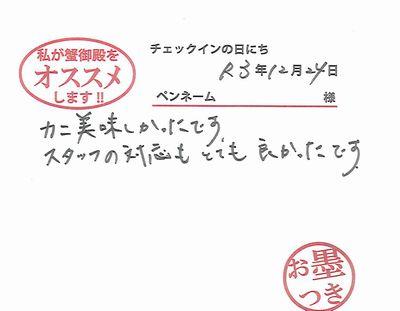 私が蟹御殿を
オススメ
します!!
チェックインの日にち
R3年12月24日
ペンネーム 様
カニ美味しかったです
スタッフの対応もとても良かったです
お墨
つき